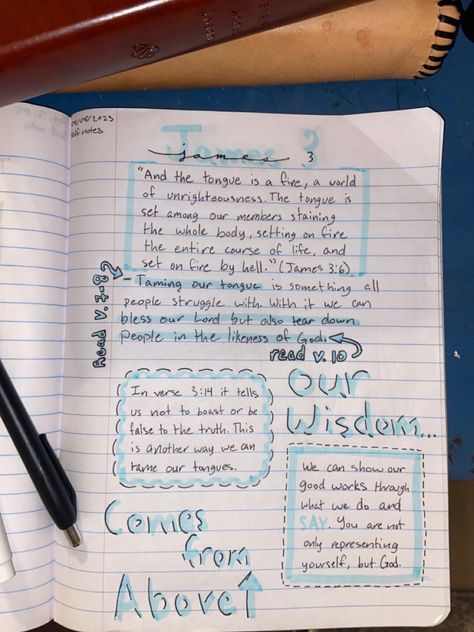 James 3
james 3
"And the tongue is a fire, a world
of unrighteousness. The tongue is
set among our members staining
the whole body, setting on fire
the entire course of life, and
set on fire by hell." (James 3:6).
Read v. 7-8
- Taming our tongue is something all
people struggle with. With it we can
bless our Lord but also tear down
people in the likeness of God.
read v. 10
In verse 3:14 it tells
us not to boast or be
false to the truth. This
is another way we can
tame our tongues.
our
Wisdom...
We can show our
good works through
what we do and
SAY. You are not
only representing
yourself, but God.
Comes
from
Above